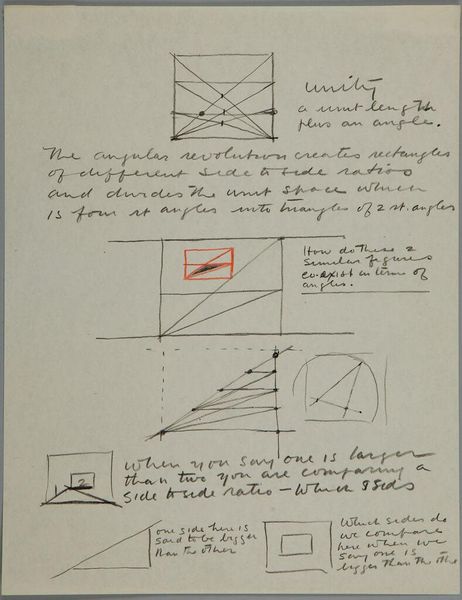 unity
a unit length
plus an angle.
The angular revolution creates rectangles
of different side to side ratios
and divides the unit space which
is four rt angles into triangles of 2 st. angles
How do these 2
similar figures
co-exist in terms of
angles.
when you say one is larger
than two you are comparing a
side to side ratio – which
1 2
one side here is
said to be bigger
than the other
Which sides do
we compare
here when we
say one is
bigger than the